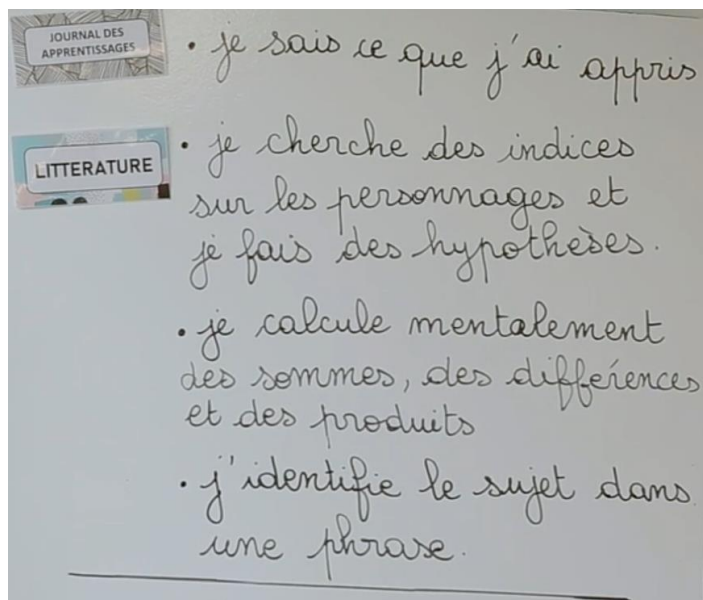 JOURNAL DES
APPRENTISSAGES
• je sais ce que j'ai appris
LITTERATURE
• je cherche des indices
sur les personnages et
je fais des hypothèses.
• je calcule mentalement
des sommes, des différences
et des produits
• j'identifie le sujet dans
une phrase.